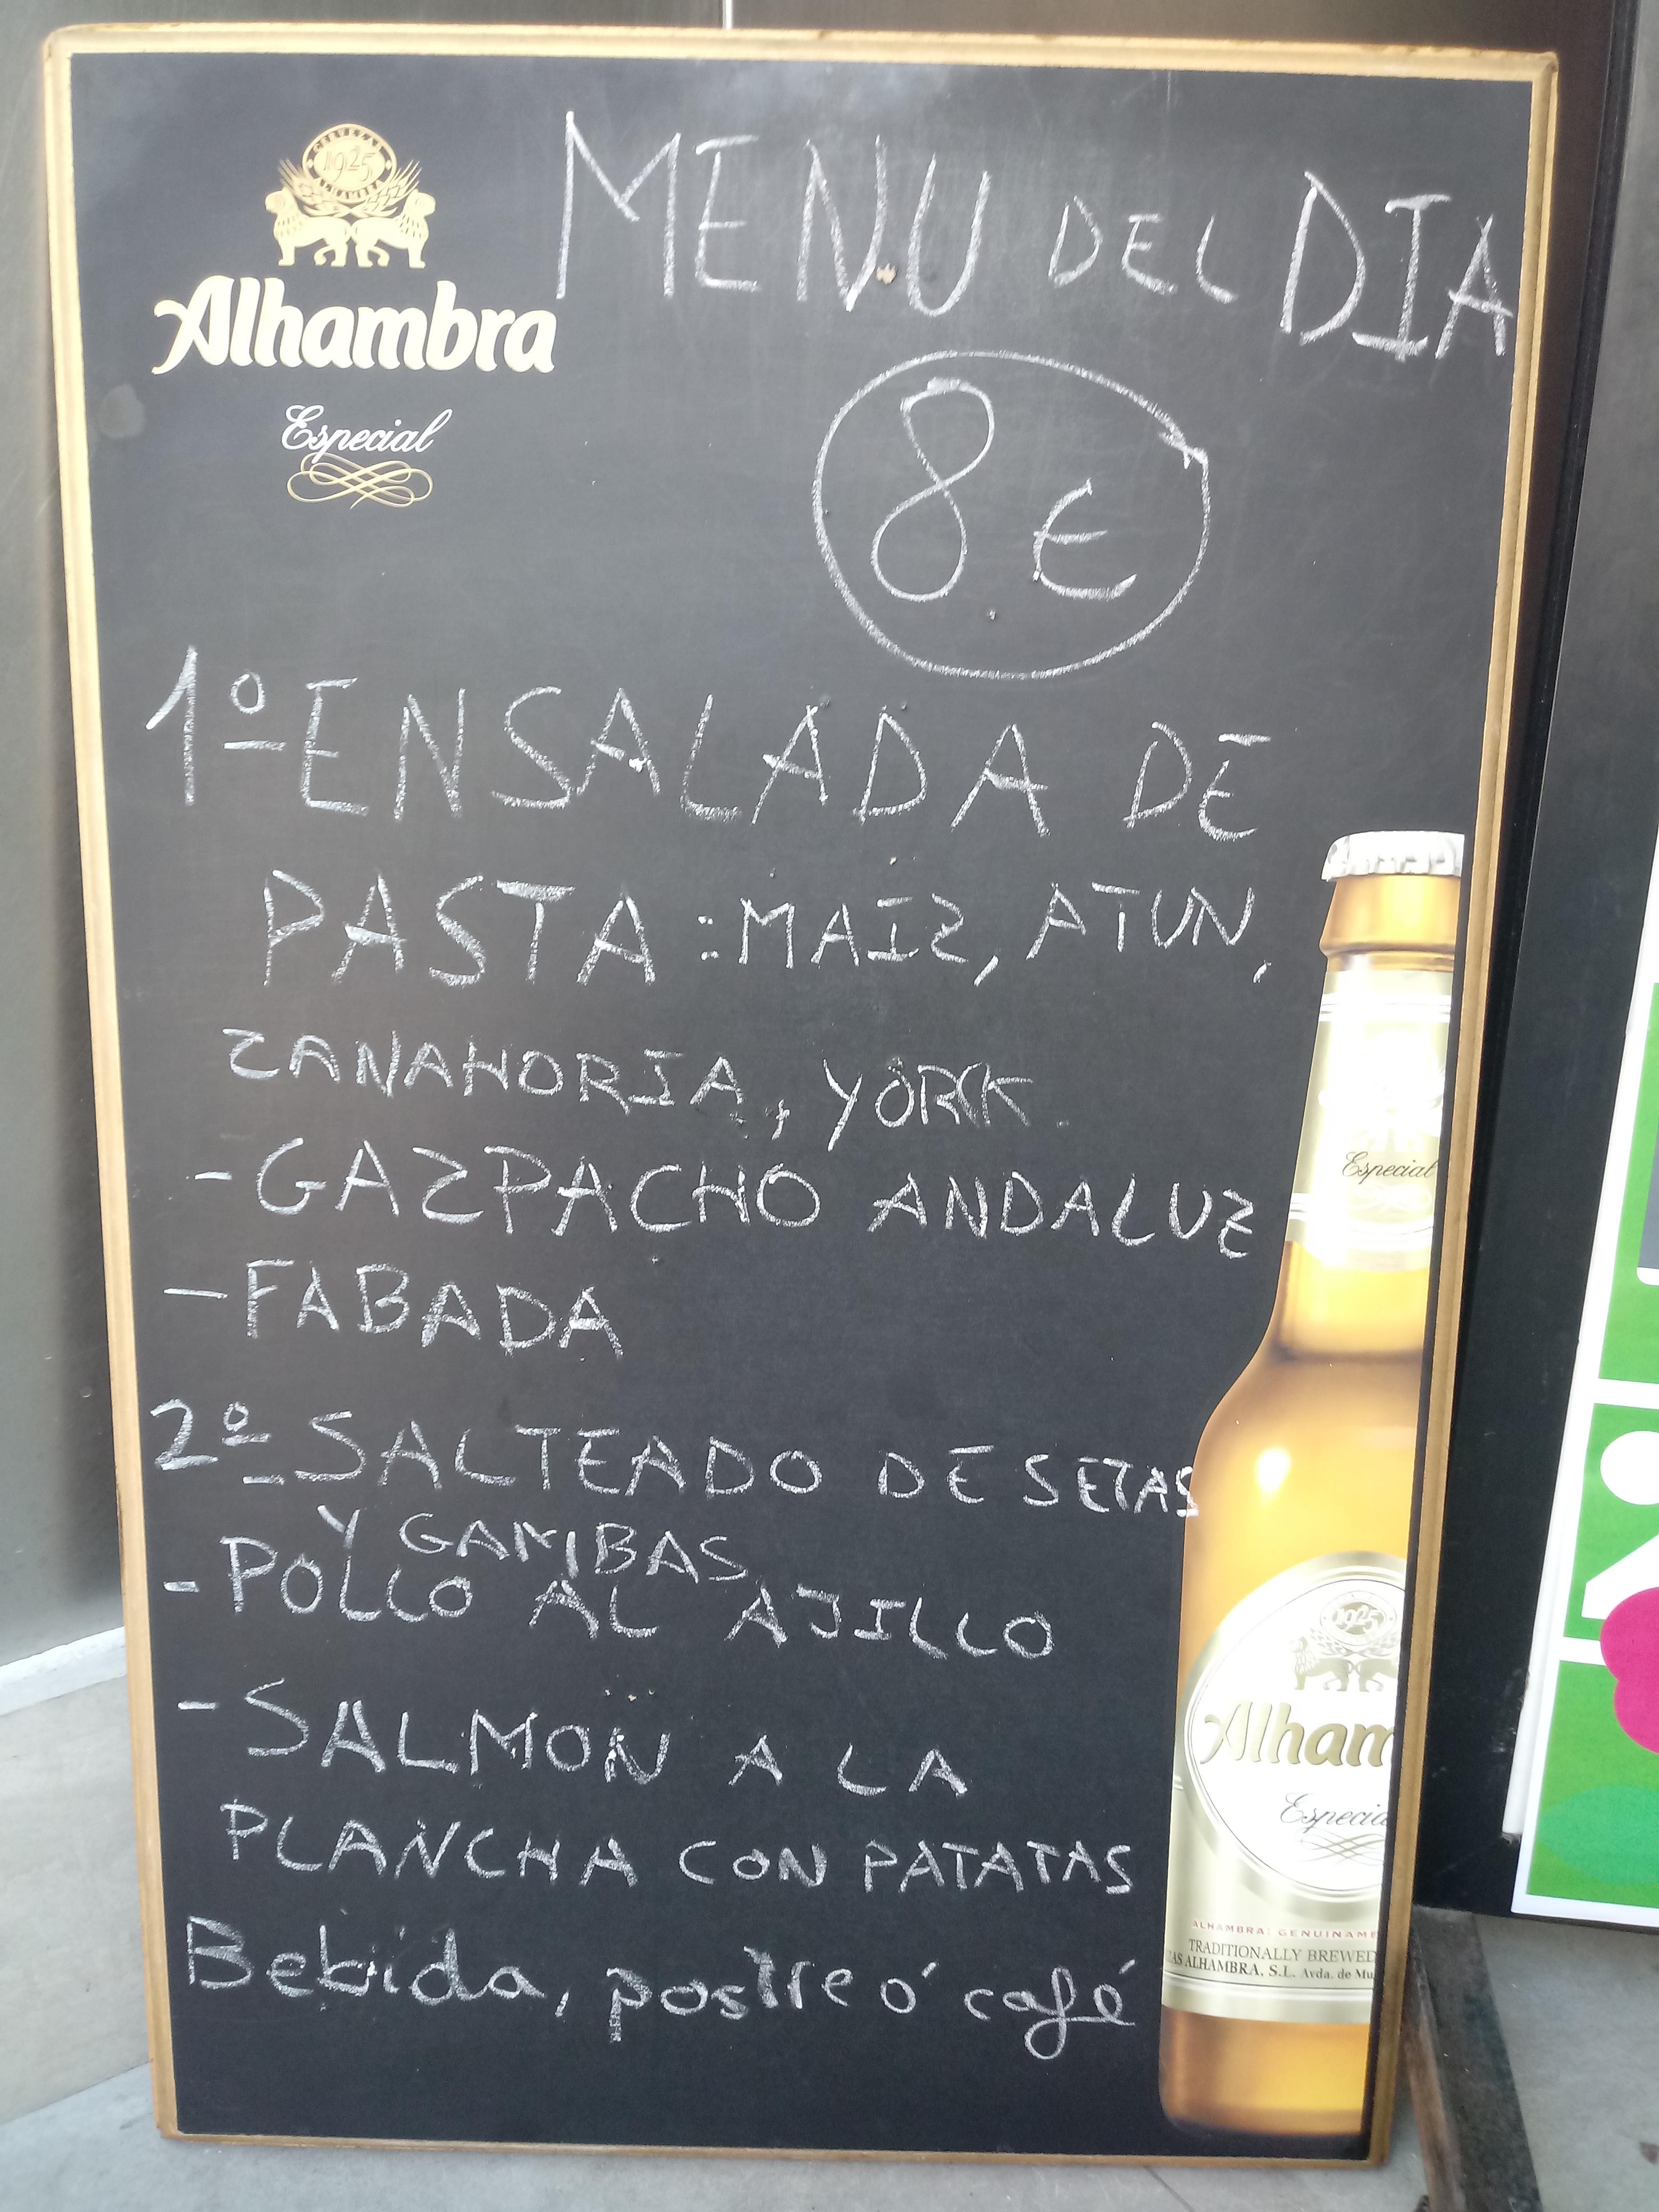 CERVEZAS
1925
ALHAMBRA
Alhambra
Especial
MENU DEL DIA
8€
1º ENSALADA DE
PASTA : MAIZ, ATUN,
ZANAHORIA, YORK.
- GAZPACHO ANDALUZ
- FABADA
2º SALTEADO DE SETAS
Y GAMBAS
- POLLO AL AJILLO
- SALMON A LA
PLANCHA CON PATATAS
Bebida, postre ó café
Especial
1925
Alham
Especia
ALHAMBRA: GENUINAME
TRADITIONALLY BREWED
AS ALHAMBRA, S.L. Avda. de Mu